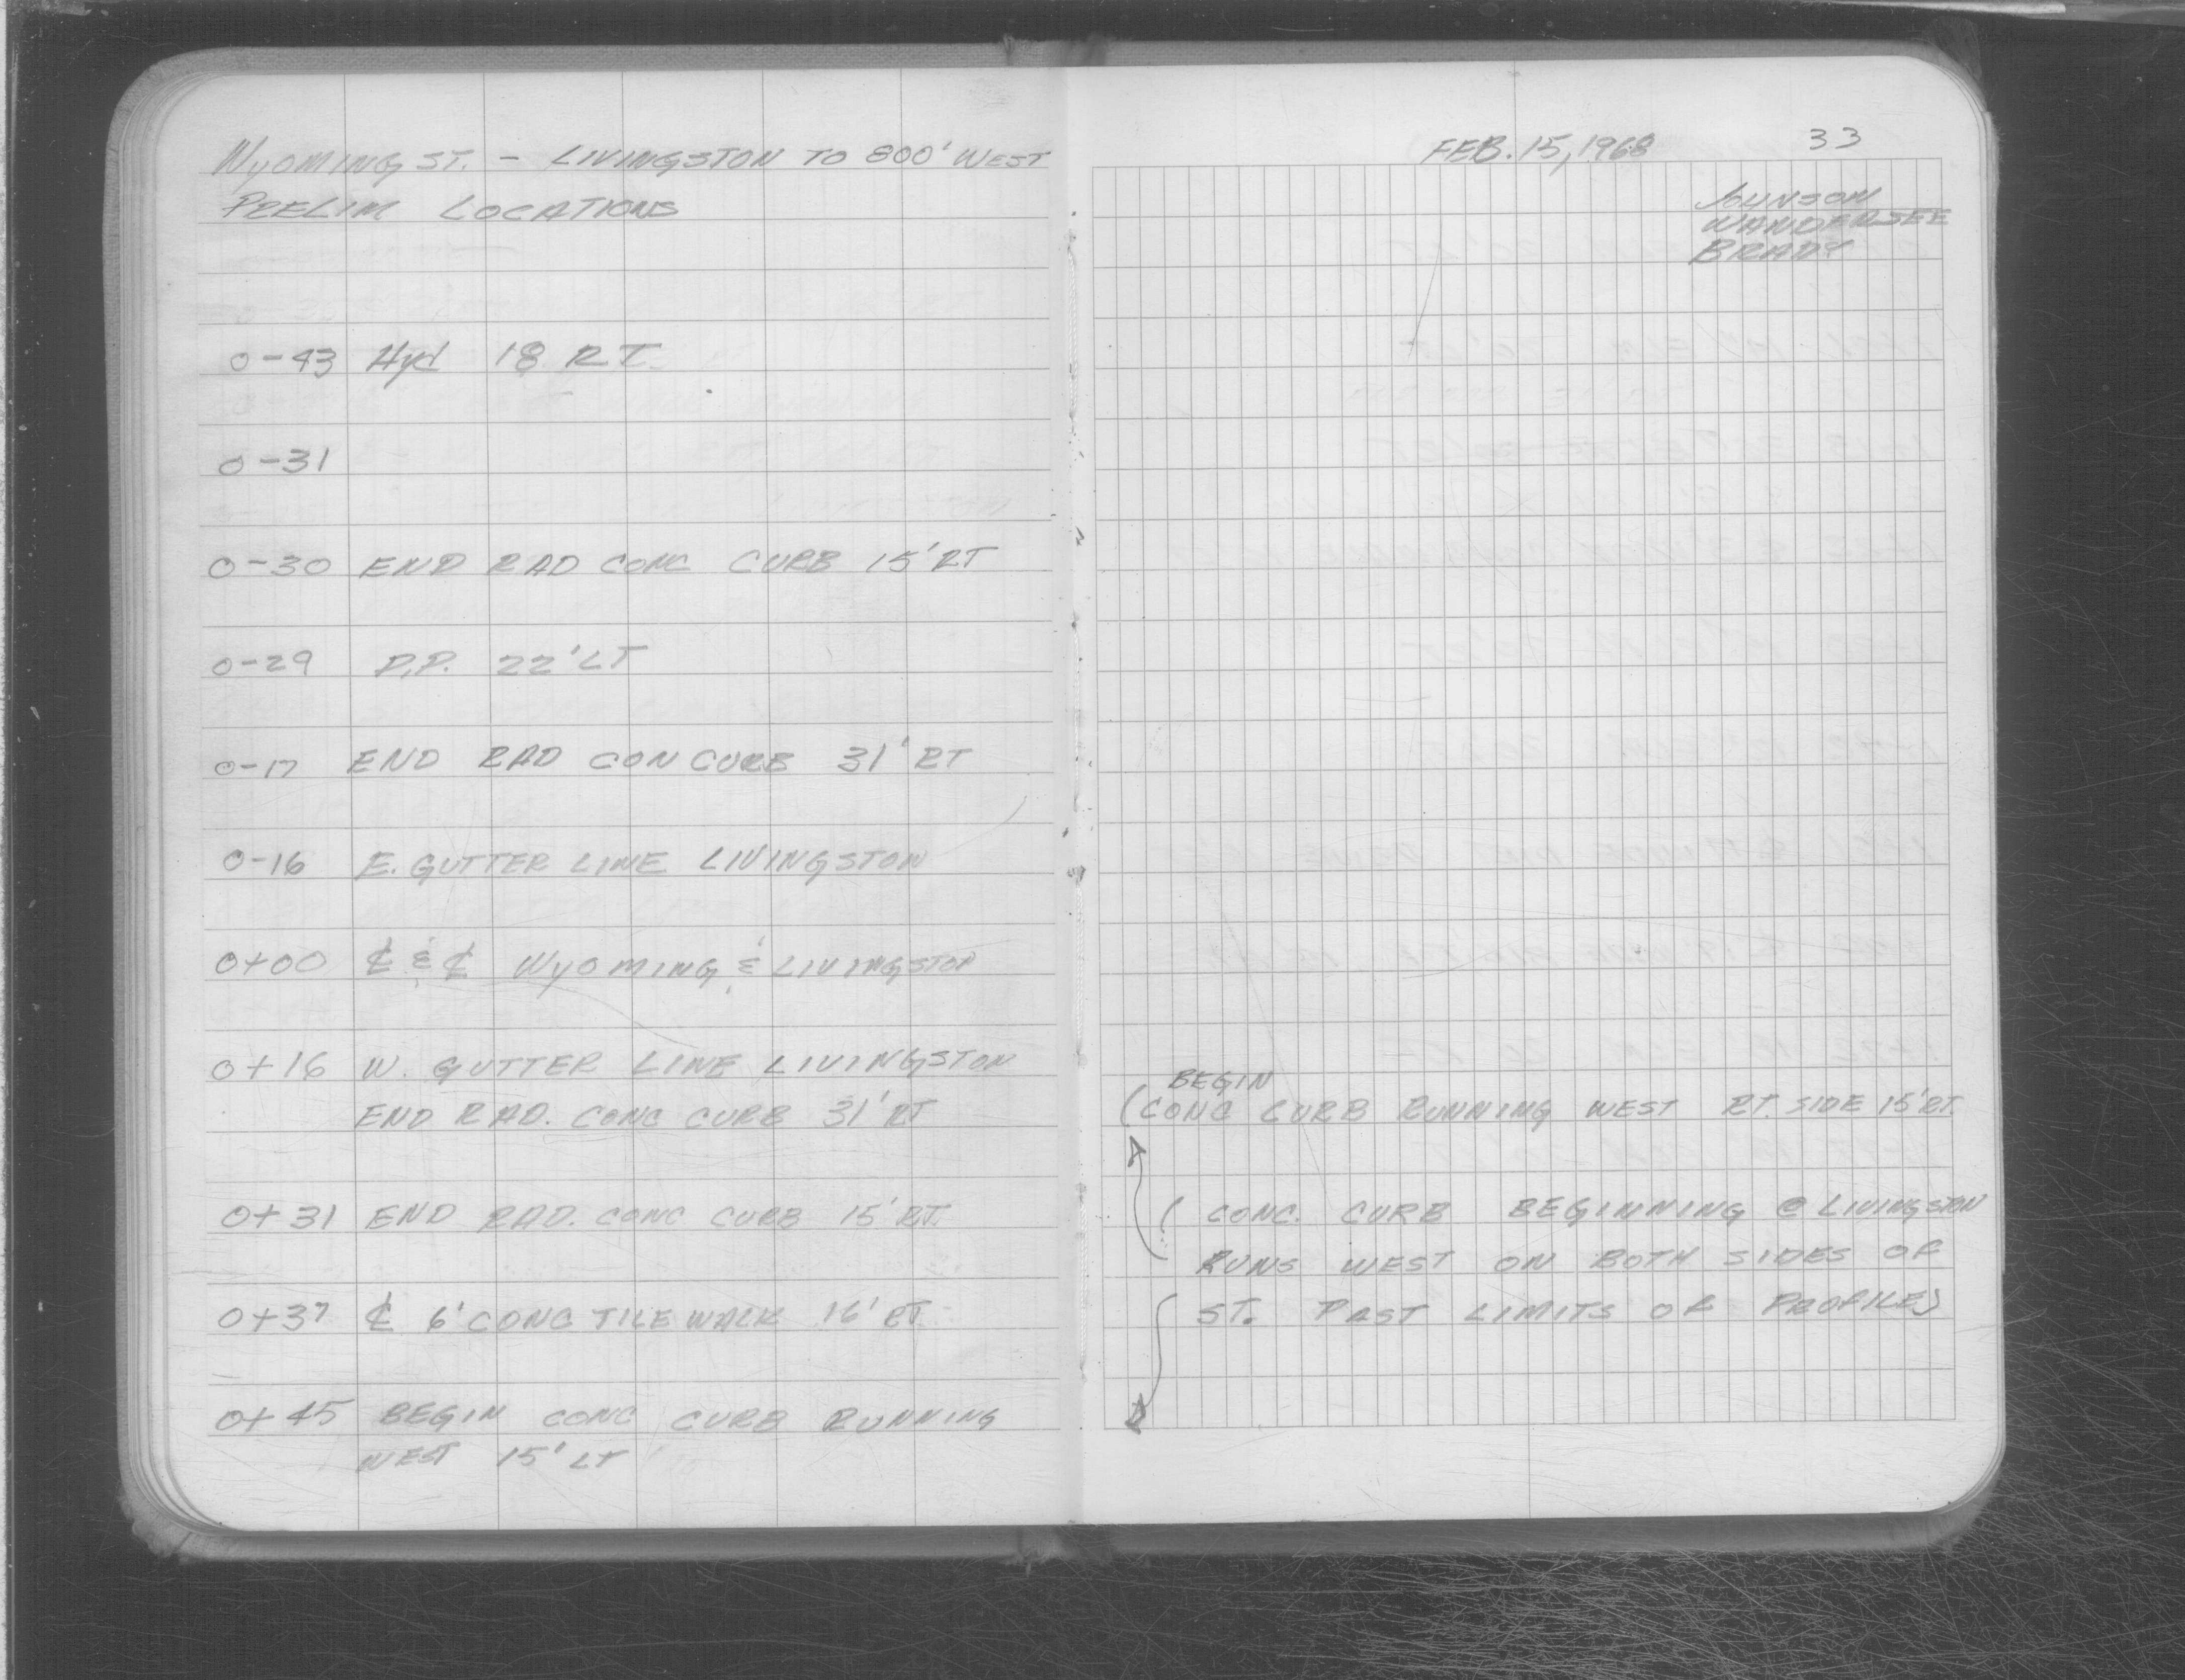 WYOMING ST. - LIVINGSTON TO 800' WEST
PRELIM LOCATIONS
0-43 Hyd 18 RT.
0-31
0-30 END RAD CONC CURB 15' RT
0-29 P.P. 22' LT
0-17 END RAD CON CURB 31' RT
0-16 E. GUTTER LINE LIVINGSTON
0+00 ℄ & ℄ WYOMING & LIVINGSTON
0+16 W. GUTTER LINE LIVINGSTON
END RAD. CONC CURB 31' RT
0+31 END RAD. CONC CURB 15' RT.
0+37 ℄ 6' CONC TILE WALK 16' RT.
0+45 BEGIN CONC CURB RUNNING
WEST 15' LT
FEB. 15, 1968 33
WANDERSEE
BRADY
BEGIN
(CONC CURB RUNNING WEST RT. SIDE 15' RT.
( CONC. CURB BEGINNING @ LIVINGSTON
RUNS WEST ON BOTH SIDES OF
ST. PAST LIMITS OF PROFILE)